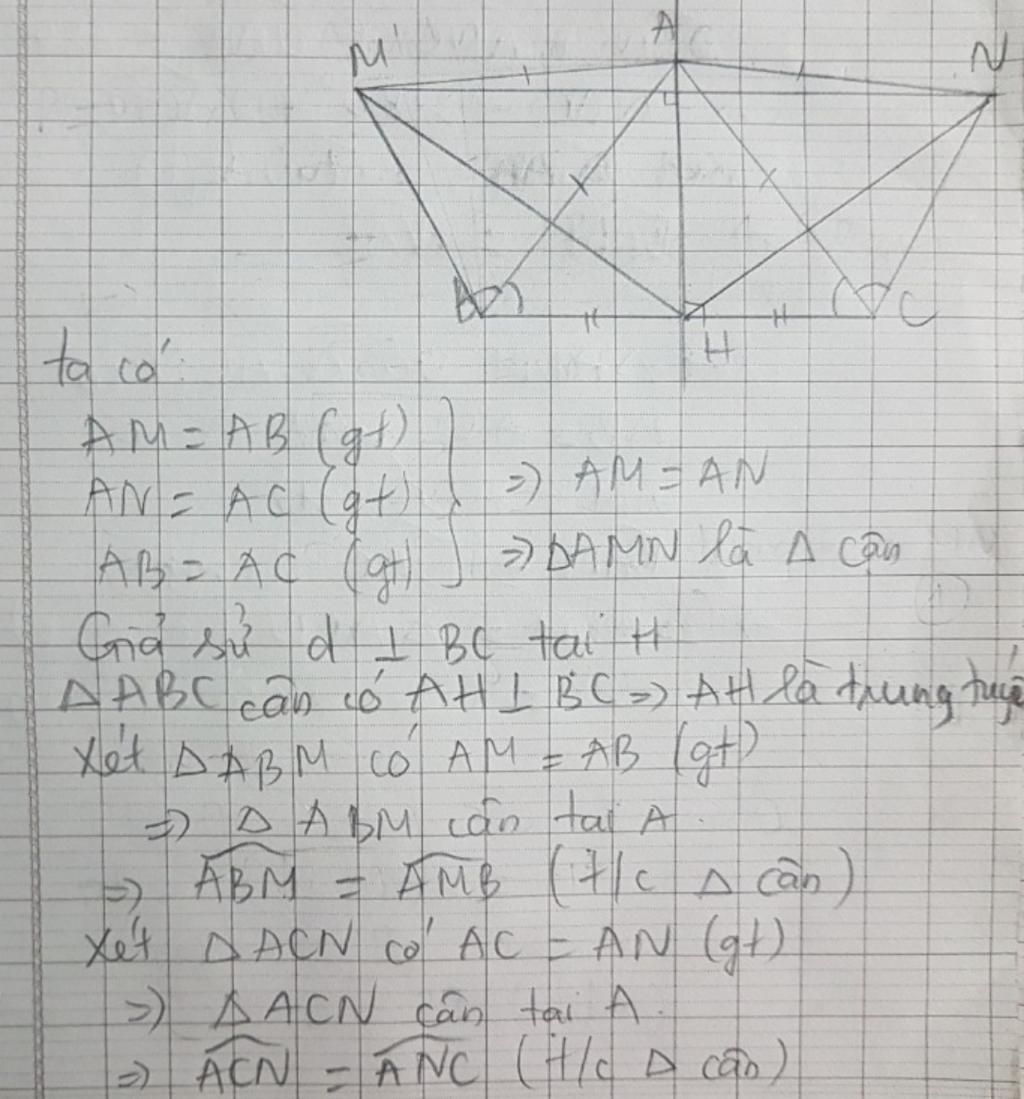 M A N
B H C
ta có:
AM = AB (gt)
AN = AC (gt) => AM = AN
AB = AC (gt) => ΔAMN là Δ cân
Giả sử d ⊥ BC tại H
ΔABC cân có AH ⊥ BC => AH là trung tuyế
Xét ΔABM có AM = AB (gt)
=> Δ ABM cân tại A.
=> ABM = AMB (t/c Δ cân)
Xét ΔACN có AC = AN (gt)
=> ΔACN cân tại A.
=> ACN = ANC (t/c Δ cân)